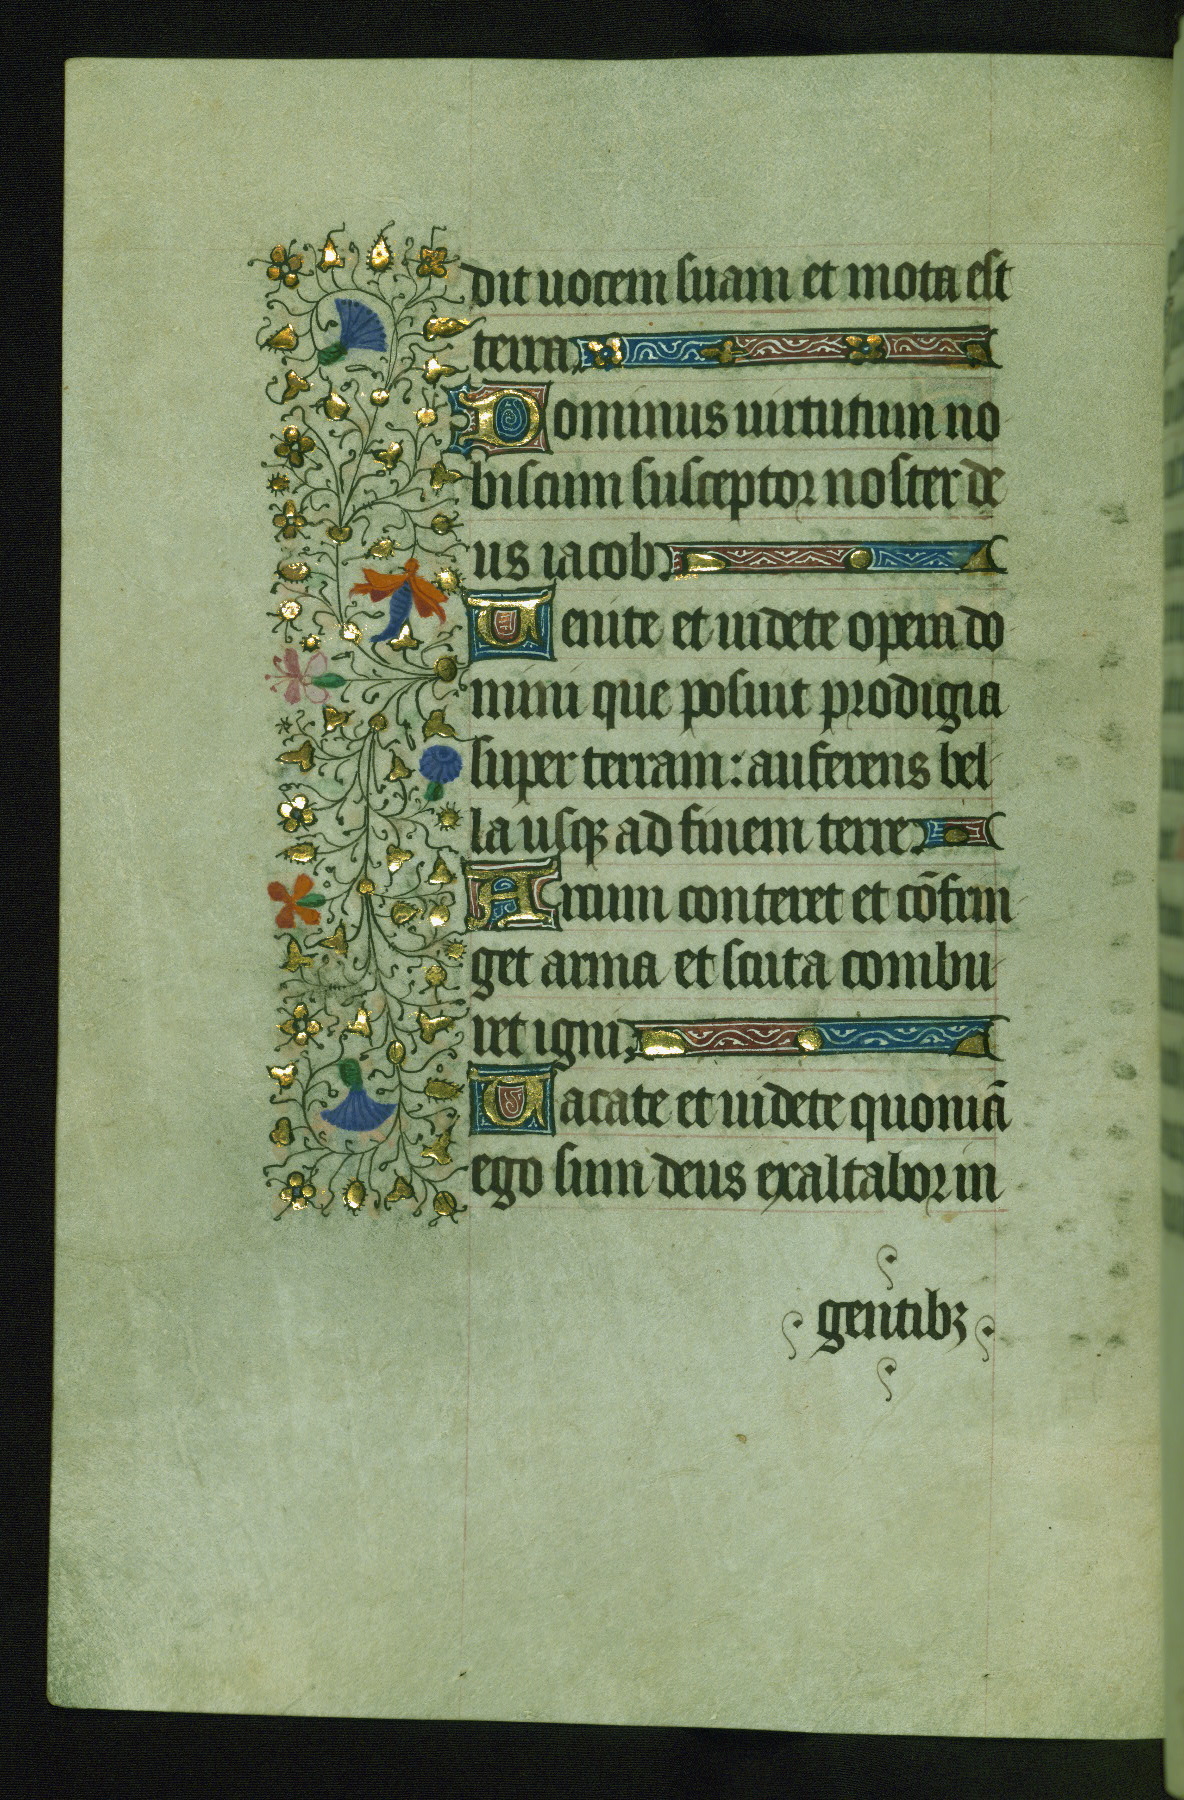 dit uocem suam et mota est
terra
Dominus uirtutum no
biscum susceptor noster de
us iacob
Uenite et uidete opera do
mini que posuit prodigia
super terram: auferens bel
la usqꝫ ad finem terre
Arcum conteret et cōfrin
get arma et scuta combu
ret igni
Uacate et uidete quoniā
ego sum deus exaltabor in
gentibꝫ